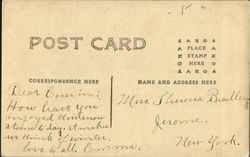 POST CARD
PLACE
STAMP
HERE
CORRESPONDENCE HERE
NAME AND ADDRESS HERE
Dear Cousin:
How have you
enjoyed this snow
storm to day. it makes
us think of winter.
love to all. Emma.
Miss Theresa Bradley
Jerome.
New York.